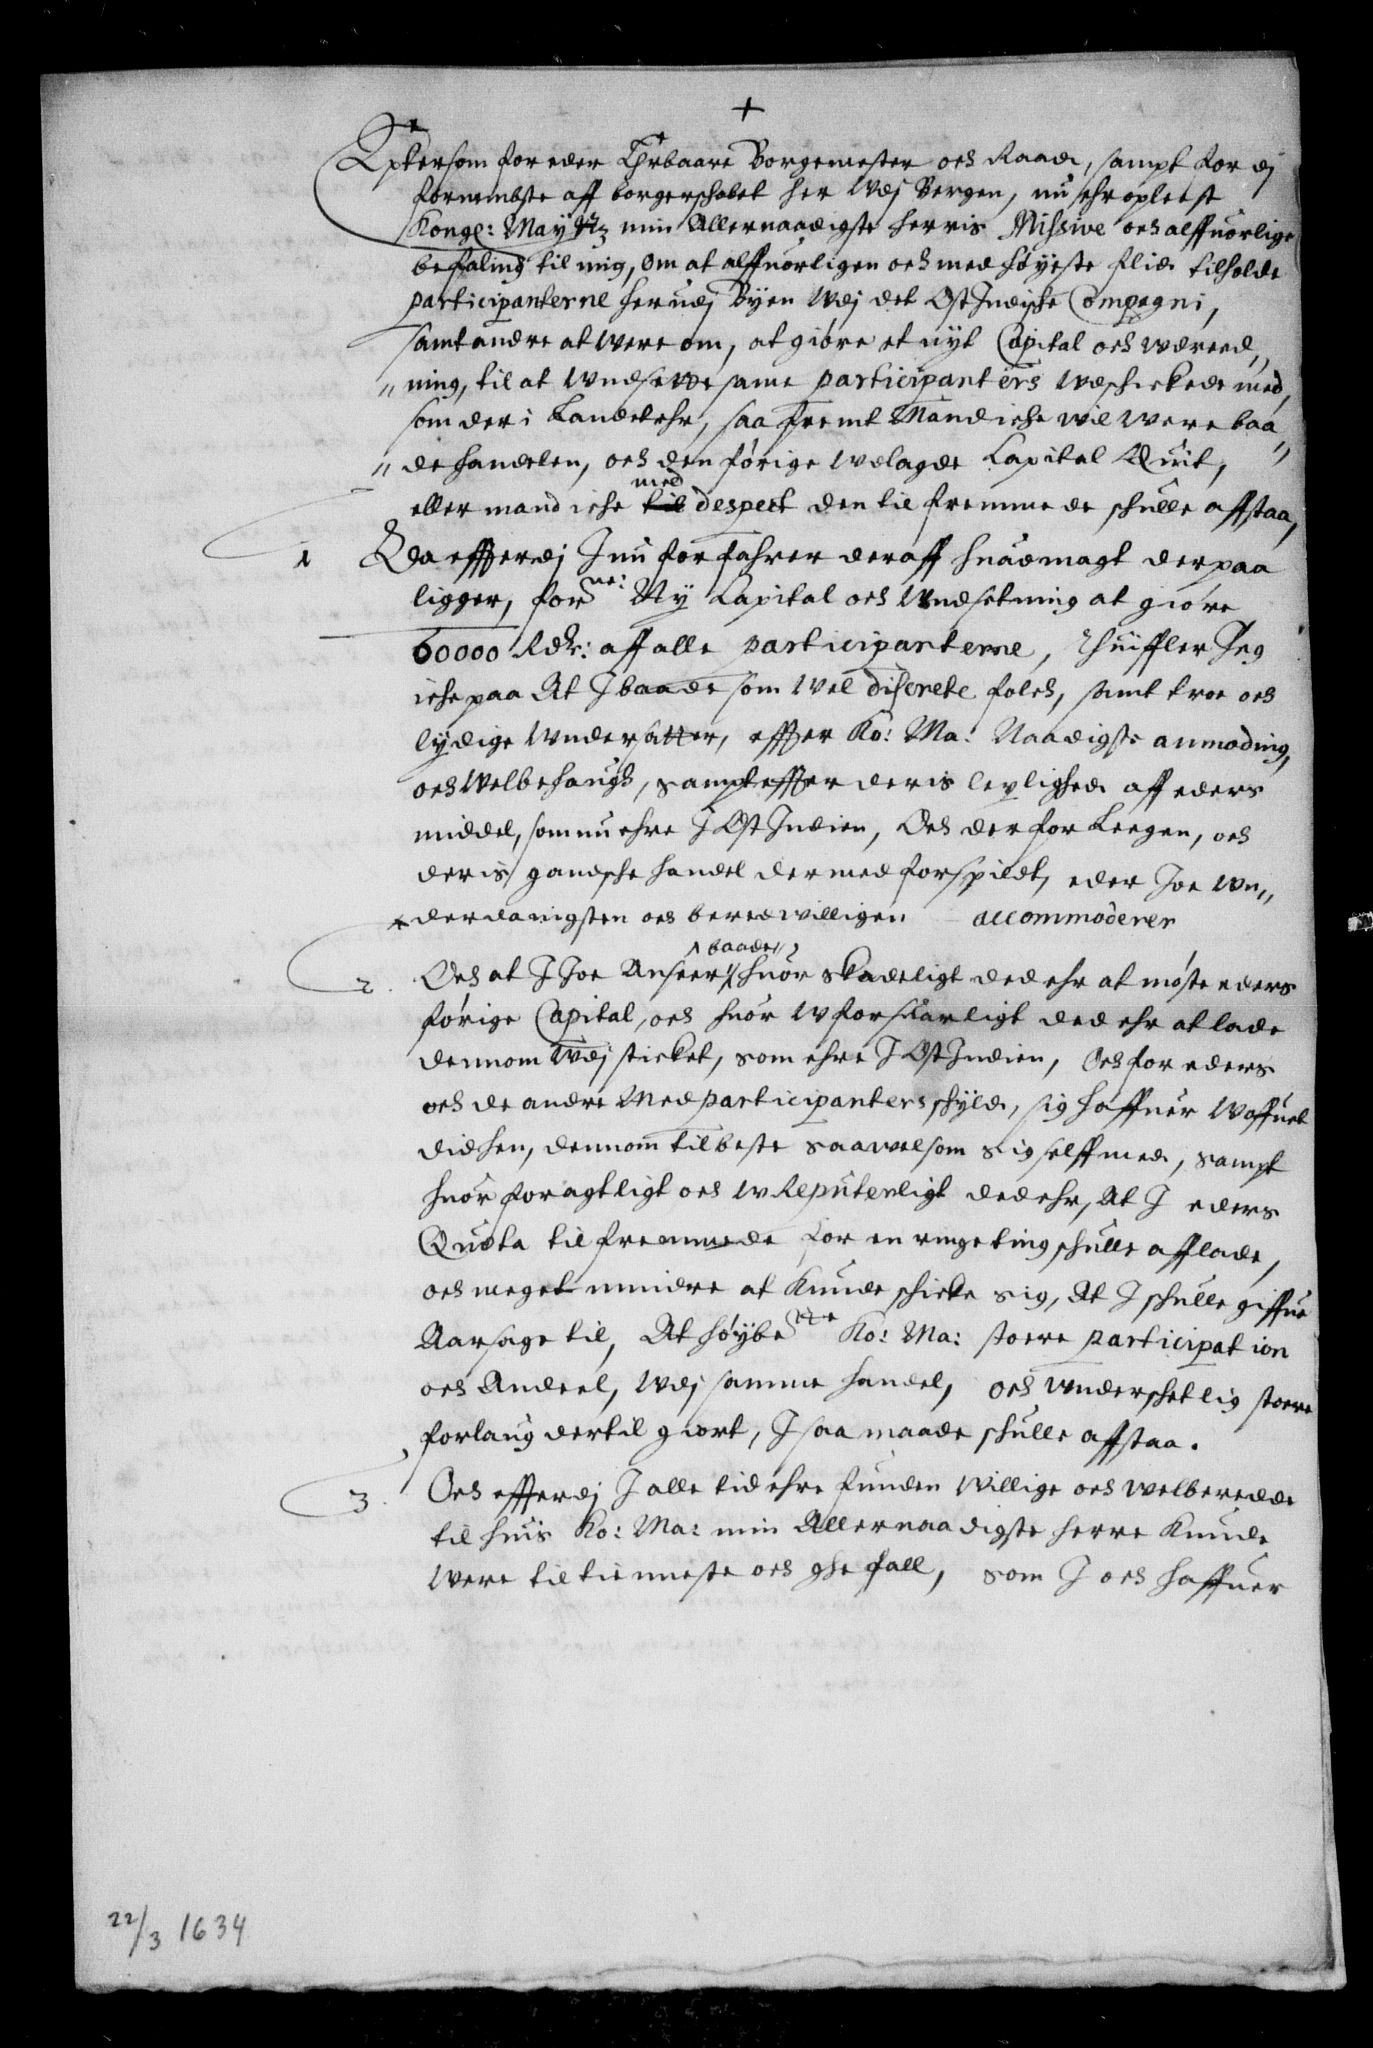 +
Epttersom for eder Ehrbaare Borgemester och Raad, sampt for dj
fornembste aff borgerschabet her Vdj Bergen, nu ehr opleest
Kongl: Maytz min Allernaadigste herris Missive och alffuorlige
befaling til mig, om at alffuorligen och med høyeste flid tilholde
participanterne herudj Byen Vdj det OstIndische Compagni,
samt andre at were om, at giøre et nyt Capital och vdreed„
„ning, til at Vndsette same participanters vdschickede med,
som der i Landet ehr, saa fremt Mand iche wil were baa„
„de handelen, och den førige vdlagde Capital Quit,
med
eller mand iche til despect den til fremmede schulle affstaa,
1 Da effterdj I nu forfahrer deraff huad magt der paa
ligger, forne: Ny Capital och Vndsetning at giøre
60000 Rdr: aff alle participanterne, Thuiffler Jeg
iche paa At I baade som Wel discrete folch, samt troe och
lydige Vndersatter, effter Ko: Ma: Naadigste anmoding,
och Velbehaugh, sampt effter deris leylighed aff eders
middel, som nu ehre I OstIndien, Och der for Leegen, och
deris gandsche handel dermed forspildt, eder Joe Vn„
„derdanigsten och beredwilligen accommoderer
baade
2. Och at I Joe Anseer, huor skadeligt ded ehr at møste eders
førige Capital, och huor Vforsuarligt ded ehr at lade
dennom Vdj sticket, som ehre I OstIndien, Och for eders
och de andre Medparticipanters schyld, sig haffuer Woffuet
did hen, dennom til beste saavelsom sig selff med, sampt
huor foragtligt och wReputerligt ded ehr, At I eders
Quota til fremmede for en ringe ting schulle afflade,
och meget mindre at kunde schicke sig, At I schulle giffue
Aarsage til, At høybete Ko: Ma: stoere participation
och Andeel, Vdj samme handel, och Vnderschetlig stoere
forlaug dertil giort, I saa maade schulle affstaa.
3. Och effterdj I alle tid ehre funden Willige och Velberedde
til huis Ko: Ma: min Allernaadigste herre Kunde
Were til tienneste och ghefall, som I och haffuer
22/3 1634